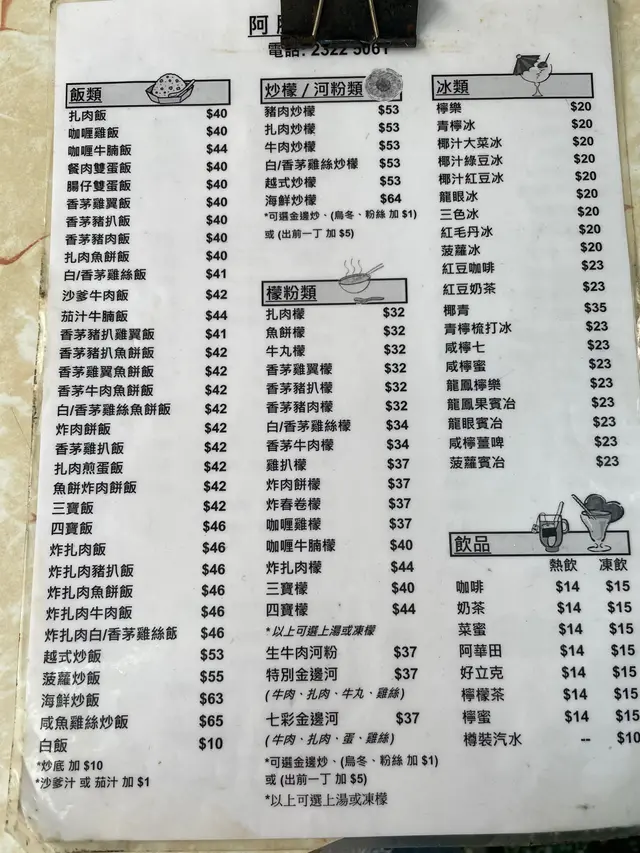 阿
電話: 2322 5061
飯類
扎肉飯 $40
咖喱雞飯 $40
咖喱牛腩飯 $44
餐肉雙蛋飯 $40
腸仔雙蛋飯 $40
香茅雞翼飯 $40
香茅豬扒飯 $40
香茅豬肉飯 $40
扎肉魚餅飯 $40
白/香茅雞絲飯 $41
沙爹牛肉飯 $42
茄汁牛腩飯 $44
香茅豬扒雞翼飯 $41
香茅豬扒魚餅飯 $42
香茅雞翼魚餅飯 $42
香茅牛肉魚餅飯 $42
白/香茅雞絲魚餅飯 $42
炸肉餅飯 $42
香茅雞扒飯 $42
扎肉煎蛋飯 $42
魚餅炸肉餅飯 $42
三寶飯 $42
四寶飯 $46
炸扎肉飯 $46
炸扎肉豬扒飯 $46
炸扎肉魚餅飯 $46
炸扎肉牛肉飯 $46
炸扎肉白/香茅雞絲飯 $46
越式炒飯 $53
菠蘿炒飯 $55
海鮮炒飯 $63
咸魚雞絲炒飯 $65
白飯 $10
*炒底 加 $10
*沙爹汁 或 茄汁 加 $1
炒檬 / 河粉類
豬肉炒檬 $53
扎肉炒檬 $53
牛肉炒檬 $53
白/香茅雞絲炒檬 $53
越式炒檬 $53
海鮮炒檬 $64
*可選金邊炒、(烏冬、粉絲 加 $1)
或 (出前一丁 加 $5)
檬粉類
扎肉檬 $32
魚餅檬 $32
牛丸檬 $32
香茅雞翼檬 $32
香茅豬扒檬 $32
香茅豬肉檬 $32
白/香茅雞絲檬 $34
香茅牛肉檬 $34
雞扒檬 $37
炸肉餅檬 $37
炸春卷檬 $37
咖喱雞檬 $37
咖喱牛腩檬 $40
炸扎肉檬 $44
三寶檬 $40
四寶檬 $44
*以上可選上湯或凍檬
生牛肉河粉 $37
特別金邊河 $37
(牛肉、扎肉、牛丸、雞絲)
七彩金邊河 $37
(牛肉、扎肉、蛋、雞絲)
*可選金邊炒、(烏冬、粉絲 加 $1)
或 (出前一丁 加 $5)
*以上可選上湯或凍檬
冰類
檸樂 $20
青檸冰 $20
椰汁大菜冰 $20
椰汁綠豆冰 $20
椰汁紅豆冰 $20
龍眼冰 $20
三色冰 $20
紅毛丹冰 $20
菠蘿冰 $20
紅豆咖啡 $23
紅豆奶茶 $23
椰青 $35
青檸梳打冰 $23
咸檸七 $23
咸檸蜜 $23
龍鳳檸樂 $23
龍鳳果賓冶 $23
龍眼賓冶 $23
咸檸薑啤 $23
菠蘿賓冶 $23
飲品
熱飲 凍飲
咖啡 $14 $15
奶茶 $14 $15
菜蜜 $14 $15
阿華田 $14 $15
好立克 $14 $15
檸檬茶 $14 $15
檸蜜 $14 $15
樽裝汽水 -- $10